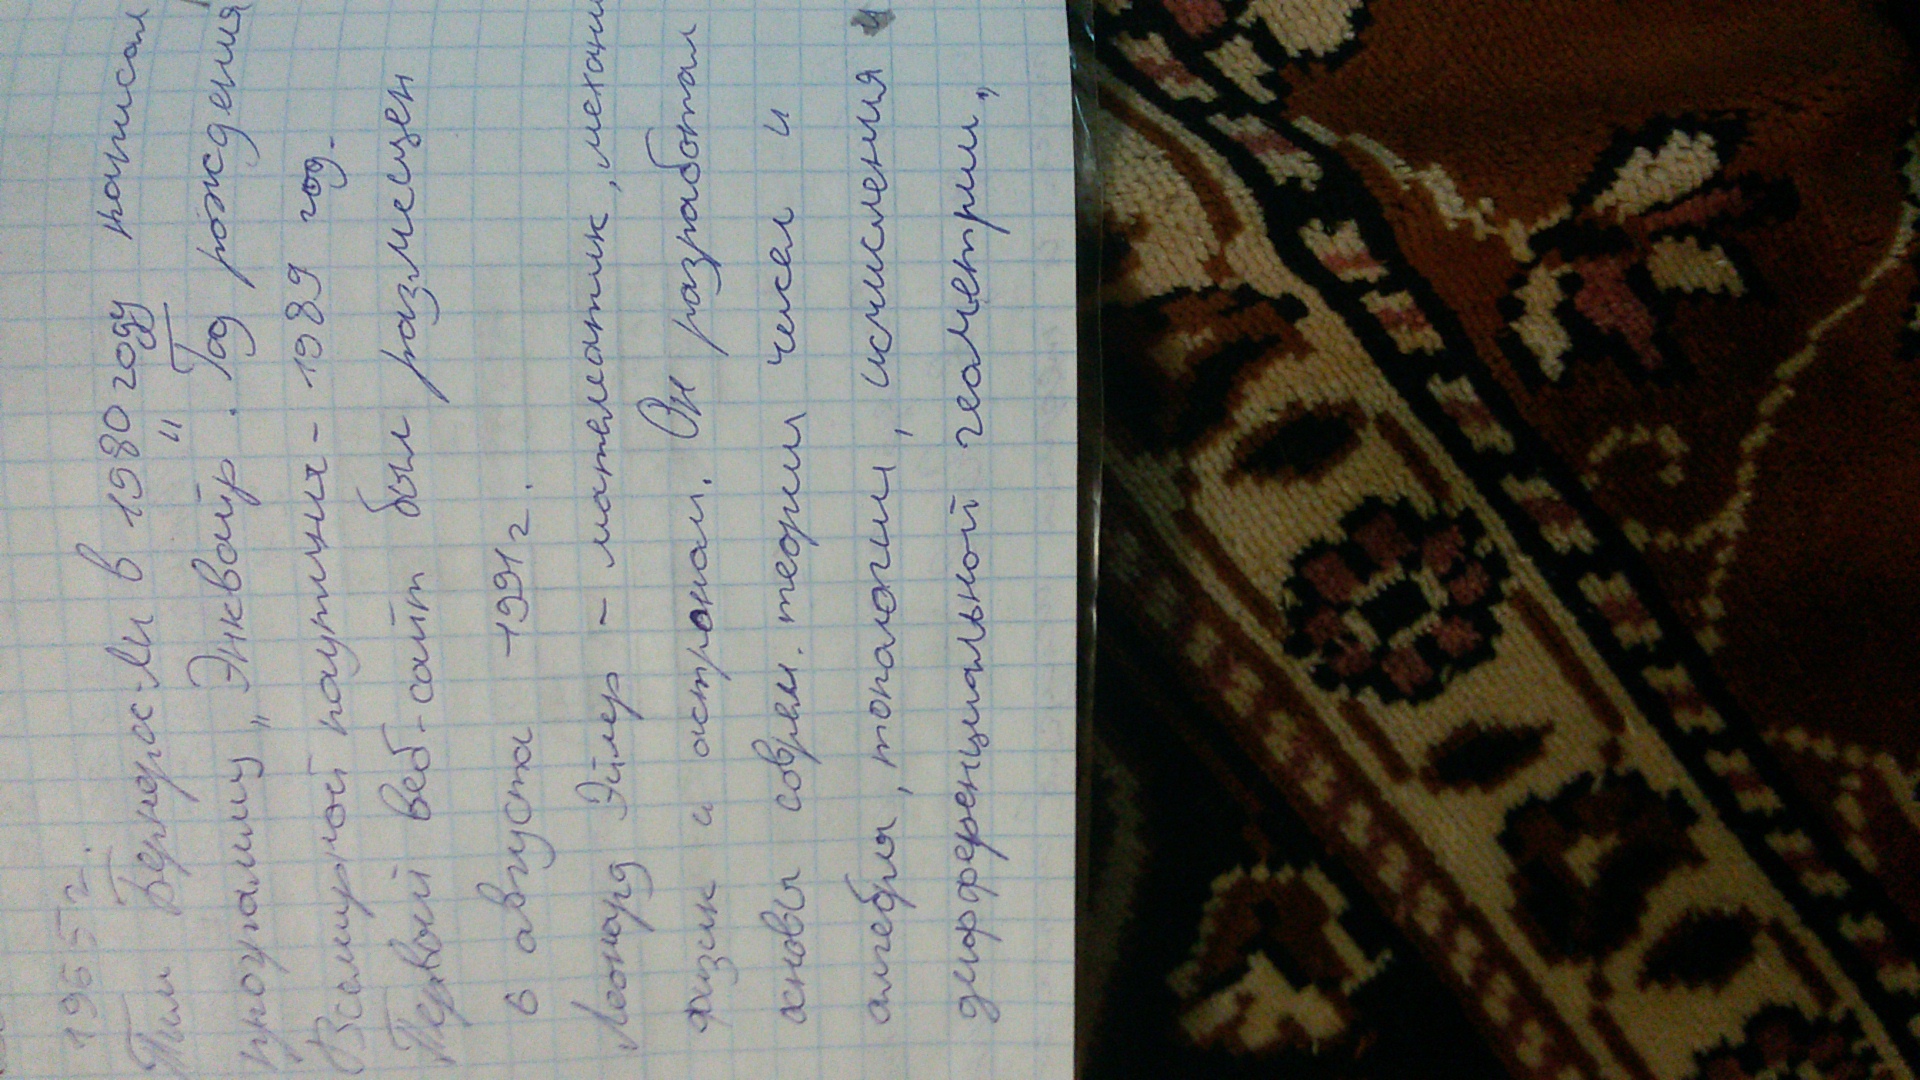 1955 г.
Тим Бернерс-Ли в 1980 году написал
программу „Энквайр". Год рождения
Всемирной паутины - 1989 год.
Первый веб-сайт был размещен
6 августа 1991 г.
Леонард Эйлер - математик, механи
физик и астроном. Он разработал
основы соврем. теории чисел и
алгебры, топологии, исчисления и
дифференциальной геометрии,